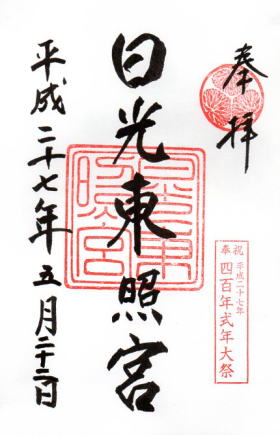 奉拝
日光東照宮
平成二十七年五月二十二日
奉祝
平成二十七年
四百年式年大祭